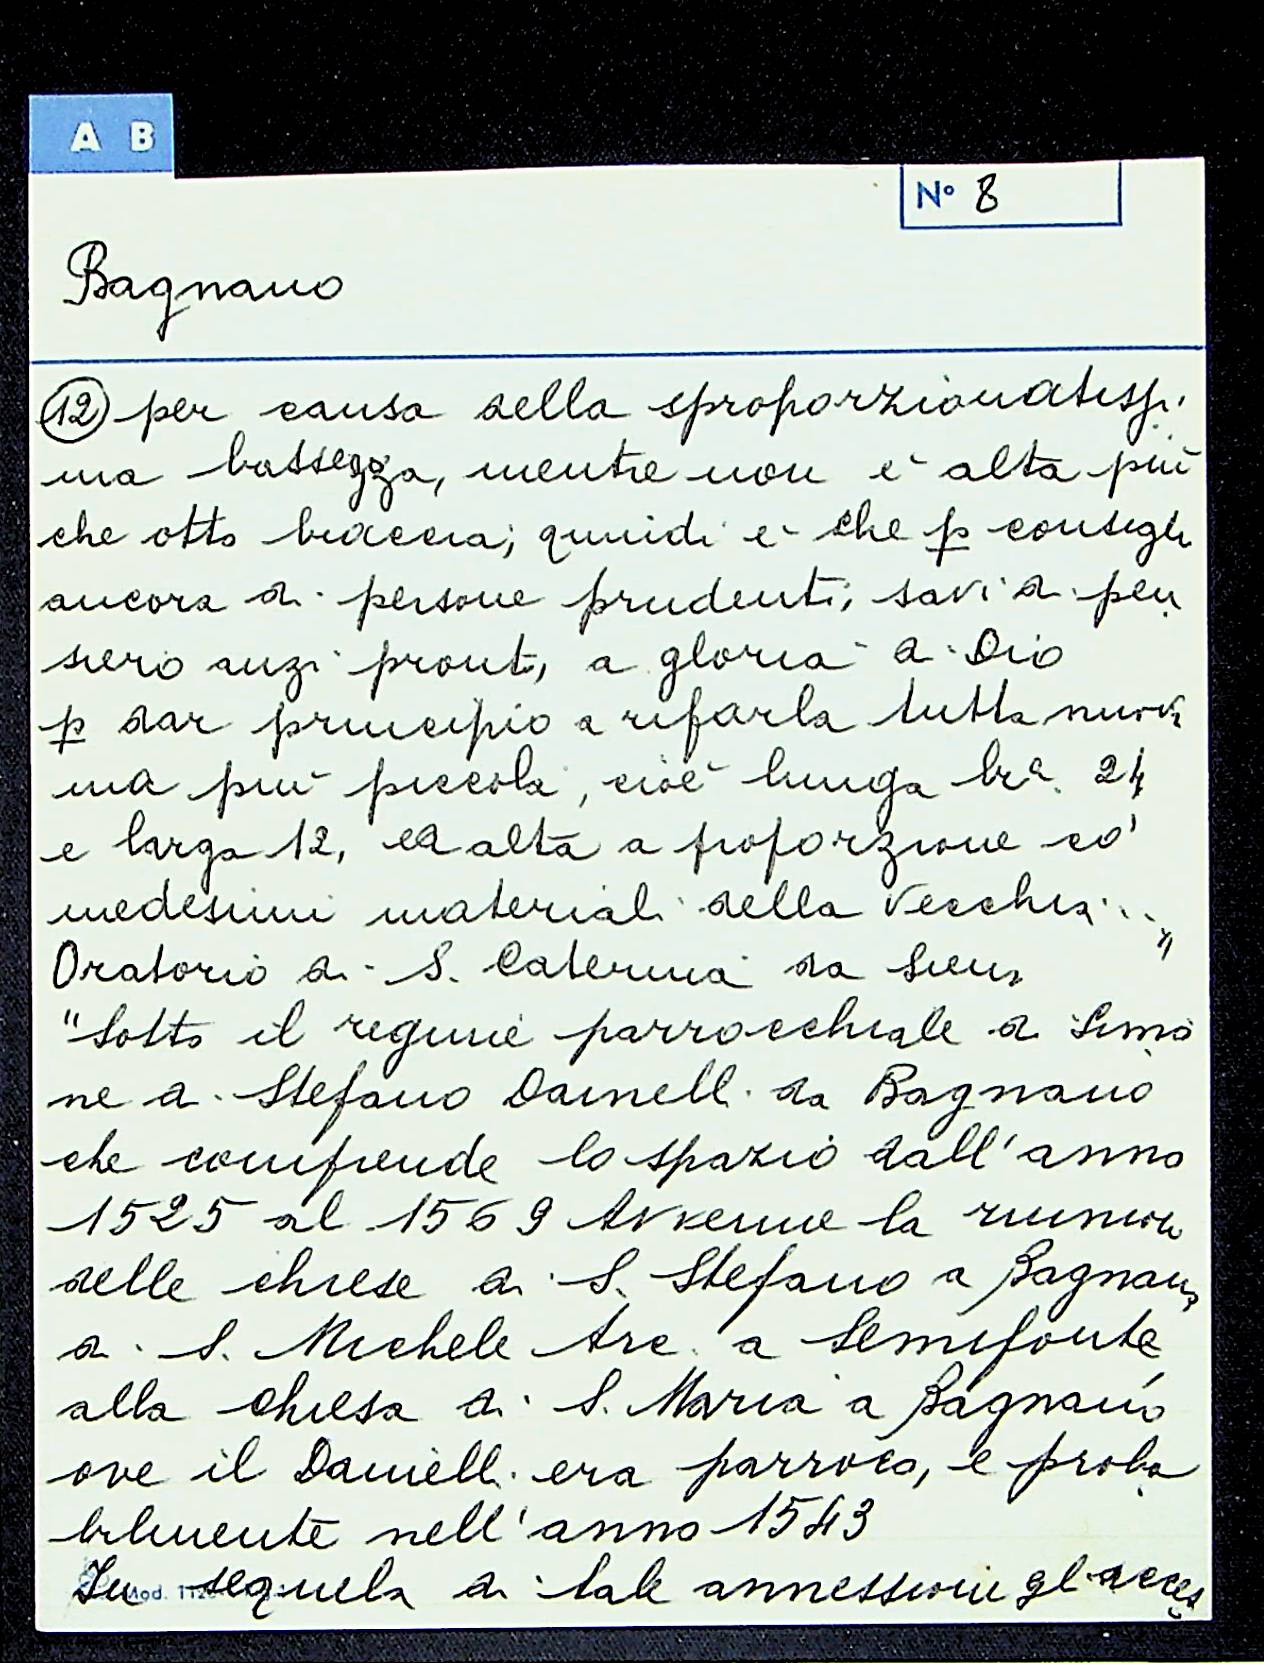 A B
N° 8
Bagnano
12 per causa della sproporzionatissi
ma bassezza, mentre non è alta più
che otto braccia; quindi è che p consigli
ancora di persone prudenti, savi di pen
siero anzi pronti, a gloria di Dio
p dar principio a rifarla tutta nuova
ma più piccola, cioè lunga bra. 24
e larga 12, ed alta a proporzione co'
medesimi materiali della vecchia..."
Oratorio di S. Caterina da Siena
"Sotto il regime parrocchiale di Simo
ne di Stefano Dainelli da Bagnano
che comprende lo spazio dall'anno
1525 al 1569 Avvenne la riunione
delle chiese di S. Stefano a Bagnano,
di S. Michele Arc. a Semifonte
alla chiesa di S. Maria a Bagnano
ove il Danielli era parroco, e proba
bilmente nell'anno 1543
In sequela di tale annessione gl acces
Mod.